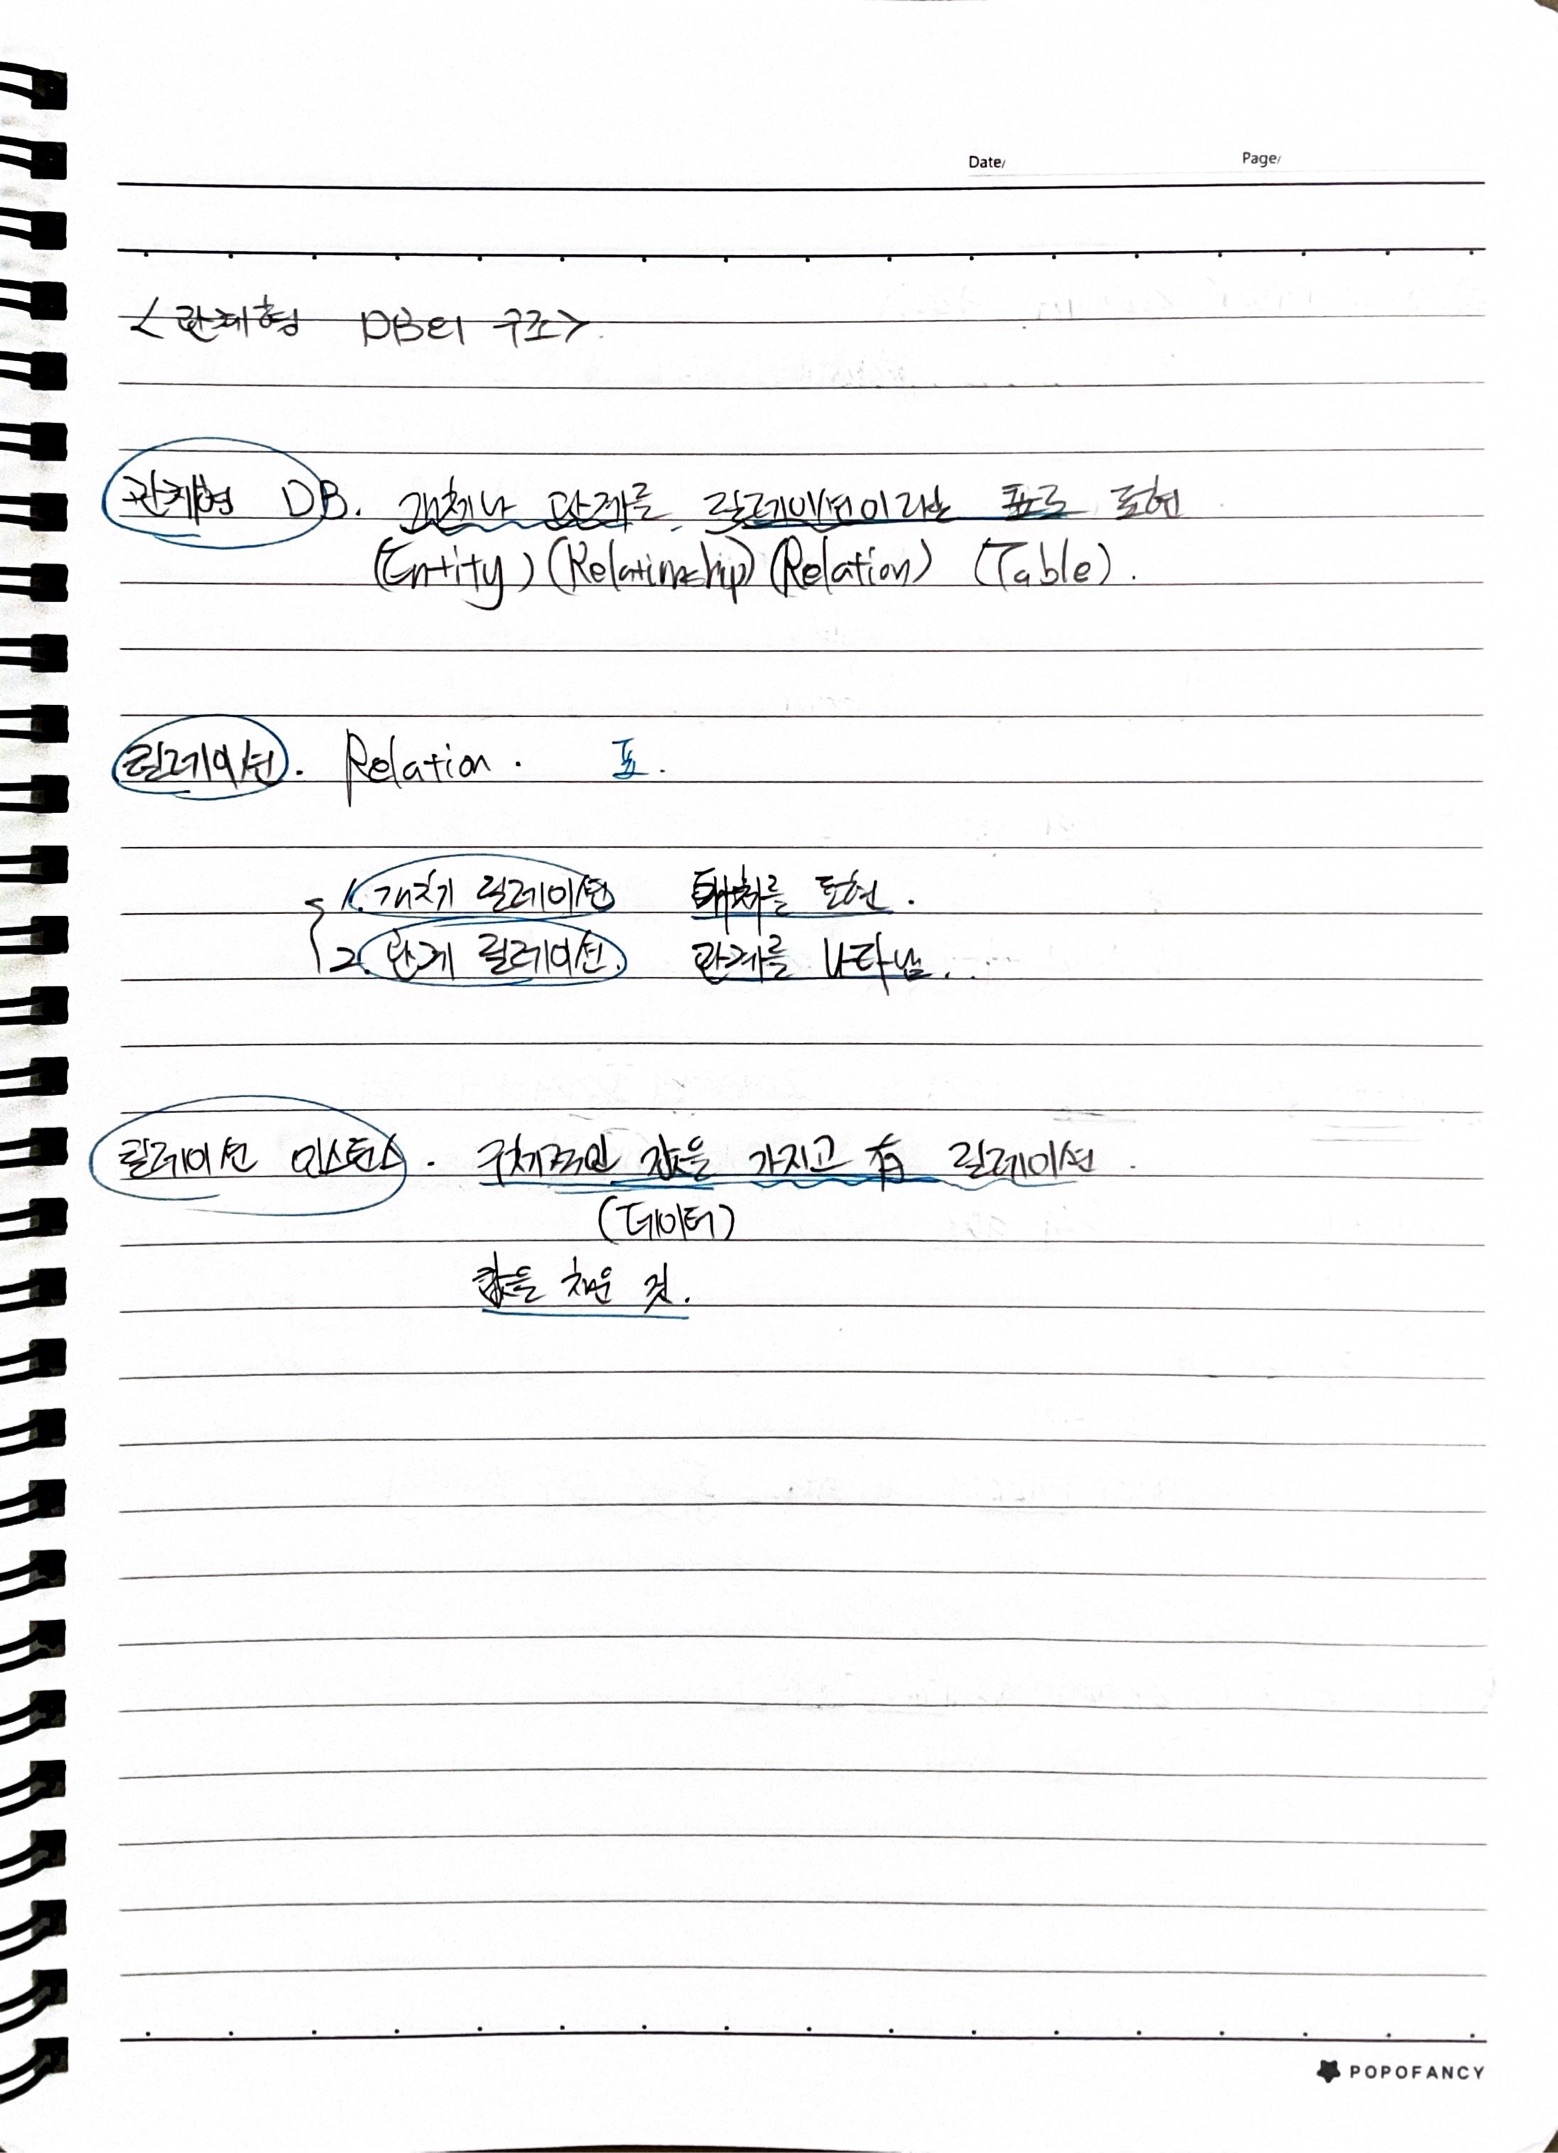 Date/ Page/
<관계형 DB의 구조>
관계형 DB. 개체나 관계를 릴레이션이라는 표로 표현
(Entity) (Relationship) (Relation) (Table).
릴레이션. Relation. 표.
1. 개체 릴레이션 개체를 표현.
2. 관계 릴레이션. 관계를 나타냄.
릴레이션 인스턴스. 구체적인 값을 가지고 有 릴레이션.
(데이터)
값을 채운 것.
POPOFANCY